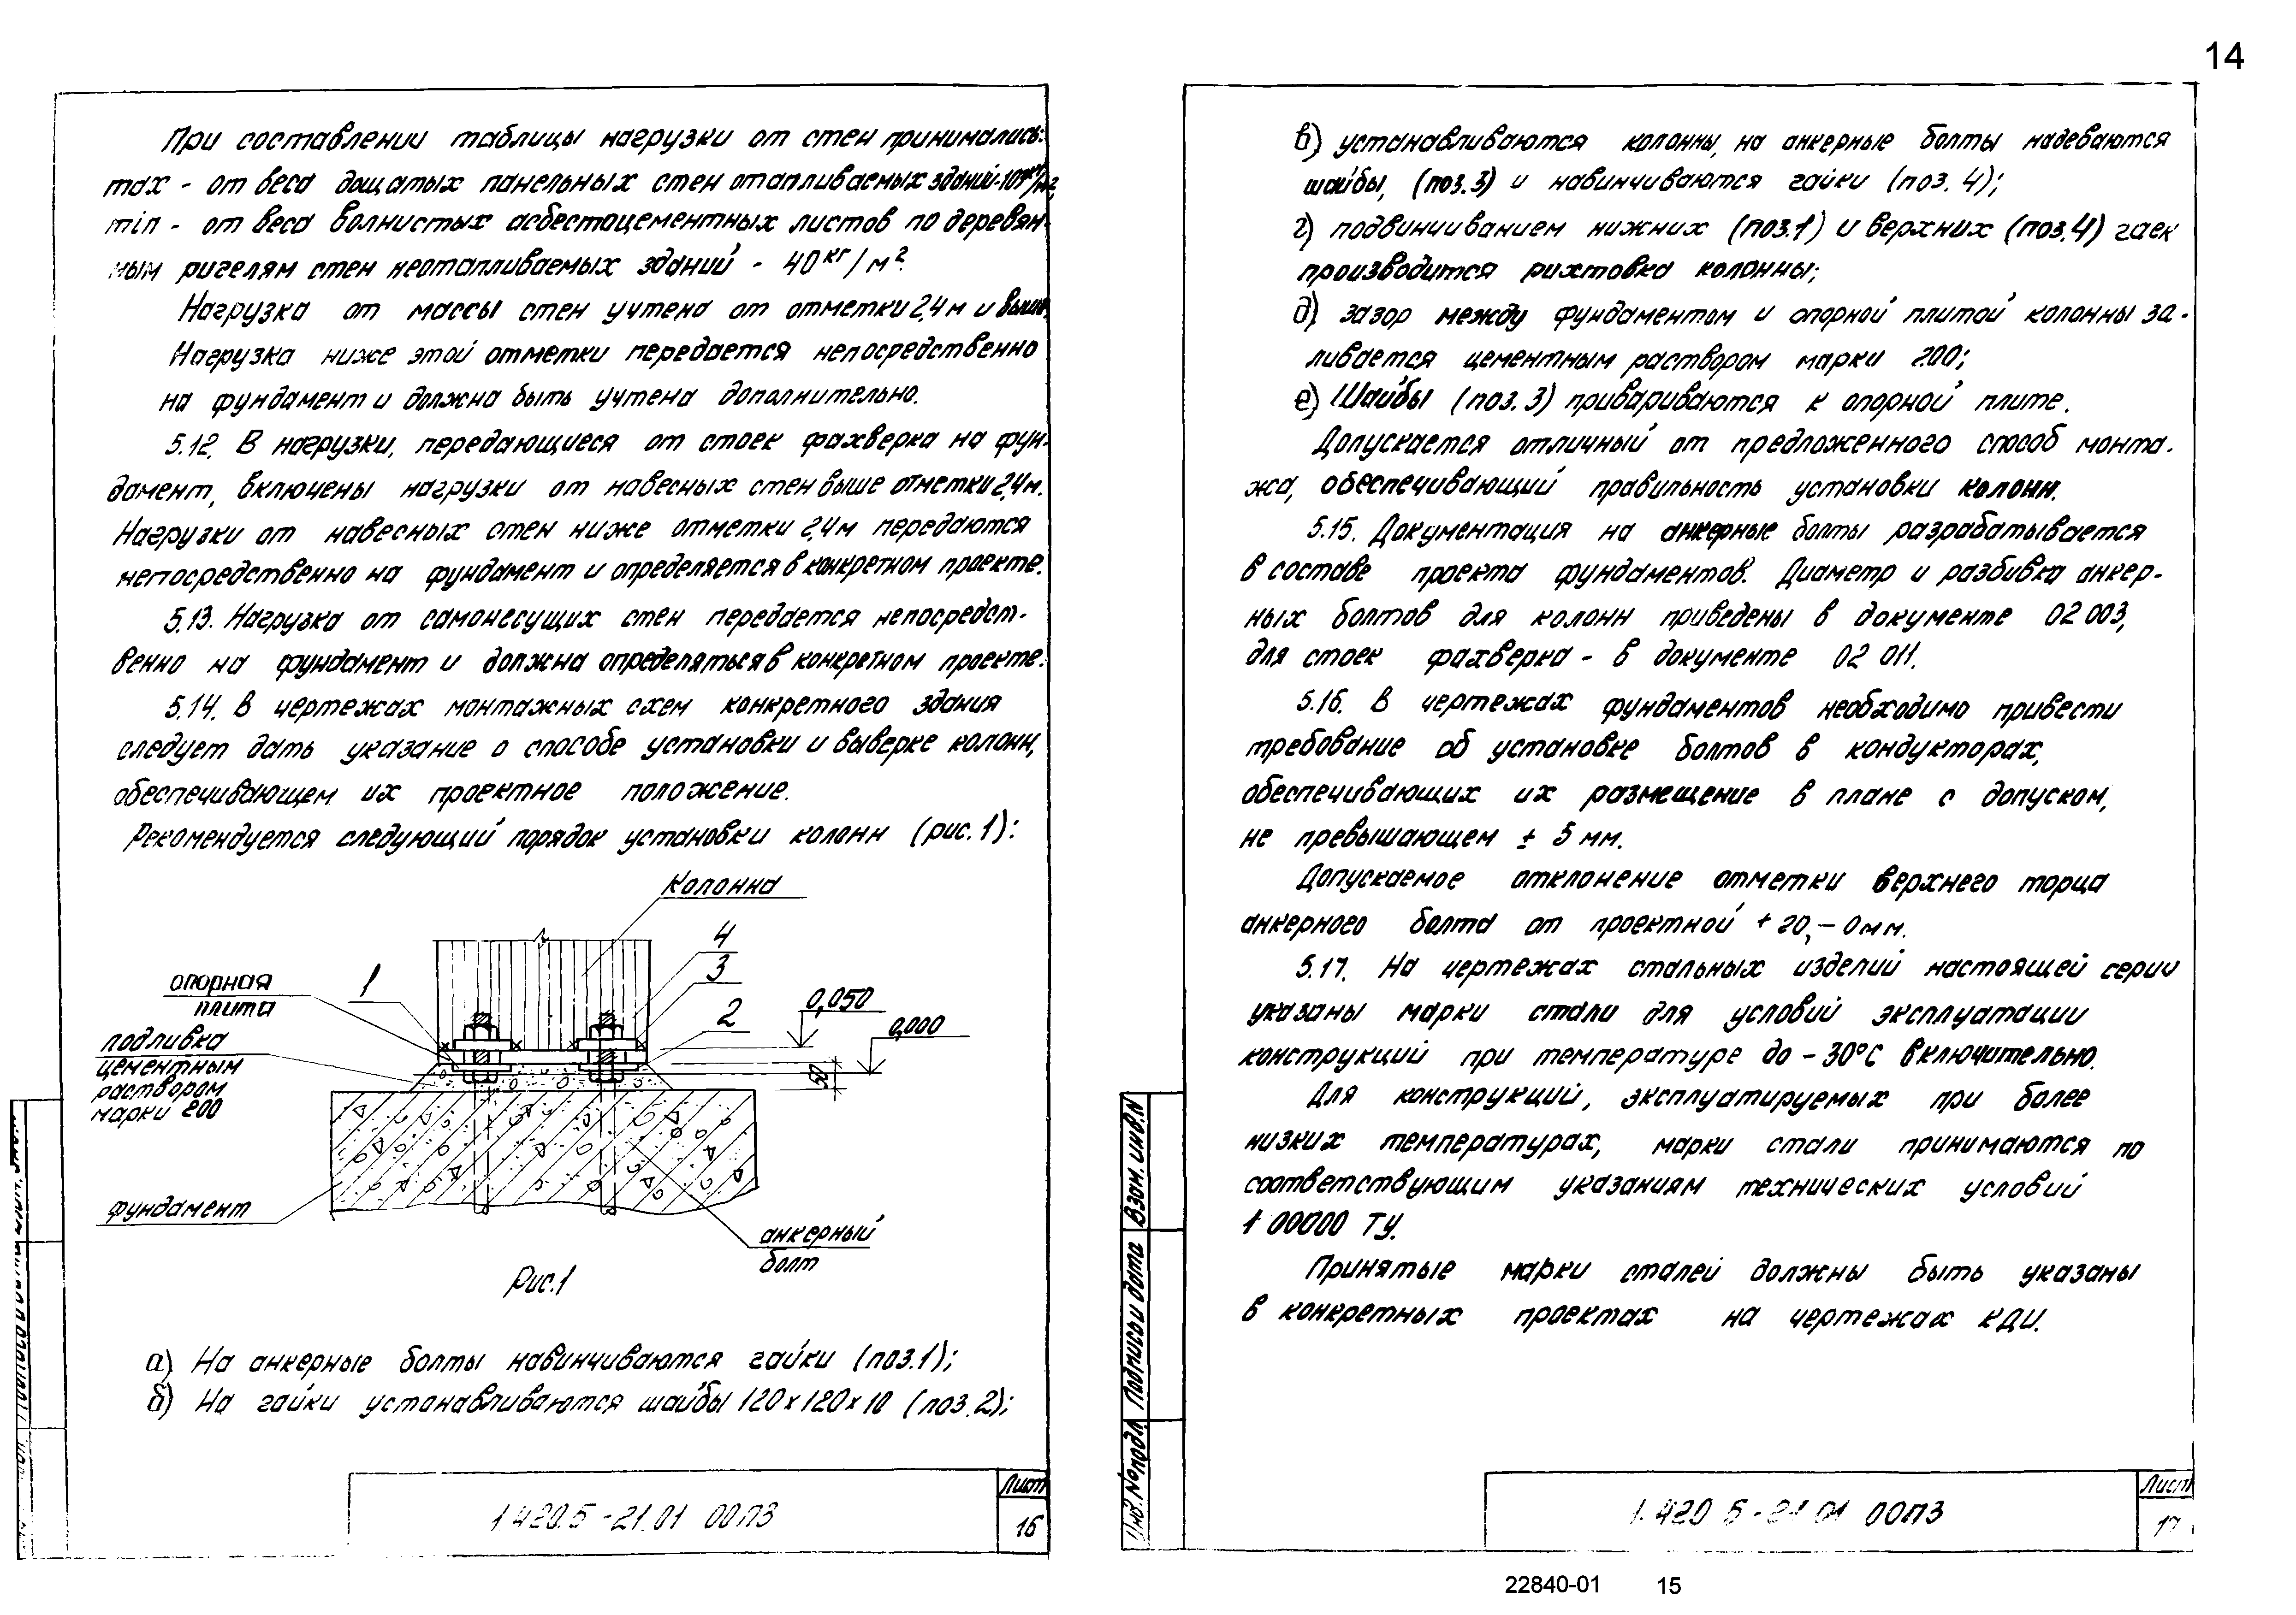 14
При составлении таблицы нагрузки от стен принимались:
max - от веса дощатых панельных стен отапливаемых зданий-
min - от веса волнистых асбестоцементных листов по деревян-
ным ригелям стен неотапливаемых зданий - 40 кг/м².
Нагрузка от массы стен учтена от отметки 2,4м и выше.
Нагрузка ниже этой отметки передается непосредственно
на фундамент и должна быть учтена дополнительно.
5.12. В нагрузки, передающиеся от стоек фахверка на фун-
дамент, включены нагрузки от навесных стен выше отметки 2,4м.
Нагрузки от навесных стен ниже отметки 2,4м передаются
непосредственно на фундамент и определяется в конкретном проекте.
5.13. Нагрузка от самонесущих стен передается непосредст-
венно на фундамент и должна определяться в конкретном проекте.
5.14. В чертежах монтажных схем конкретного здания
следует дать указание о способе установки и выверке колонн,
обеспечивающем их проектное положение.
Рекомендуется следующий порядок установки колонн (рис.1):
Колонна
4
3
2
1
опорная
плита
подливка
цементным
раствором
марки 200
0,050
0,000
50
фундамент
анкерный
болт
Рис.1
а) На анкерные болты навинчиваются гайки (поз.1);
б) На гайки устанавливаются шайбы 120х120х10 (поз.2);
1.420.5-21.01 00ПЗ
Лист
16
в) устанавливаются колонны, на анкерные болты надеваются
шайбы, (поз.3) и навинчиваются гайки (поз.4);
г) подвинчиванием нижних (поз.1) и верхних (поз.4) гаек
производится рихтовка колонны;
д) зазор между фундаментом и опорной плитой колонны за-
ливается цементным раствором марки 200;
е) Шайбы (поз.3) привариваются к опорной плите.
Допускается отличный от предложенного способ монта-
жа, обеспечивающий правильность установки колонн.
5.15. Документация на анкерные болты разрабатывается
в составе проекта фундаментов. Диаметр и разбивка анкер-
ных болтов для колонн приведены в документе 02 003,
для стоек фахверка - в документе 02 011.
5.16. В чертежах фундаментов необходимо привести
требование об установке болтов в кондукторах,
обеспечивающих их размещение в плане с допуском,
не превышающем ± 5 мм.
Допускаемое отклонение отметки верхнего торца
анкерного болта от проектной +20,-0мм.
5.17. На чертежах стальных изделий настоящей серии
указаны марки стали для условий эксплуатации
конструкций при температуре до -30°С включительно.
Для конструкций, эксплуатируемых при более
низких температурах, марки стали принимаются по
соответствующим указаниям технических условий
1 00000 ТУ.
Принятые марки сталей должны быть указаны
в конкретных проектах на чертежах КДИ.
Взам. инв.N
Подпись и дата
Инв.№подл.
1.420.5-21.01 00ПЗ
Лист
17
22840-01 15